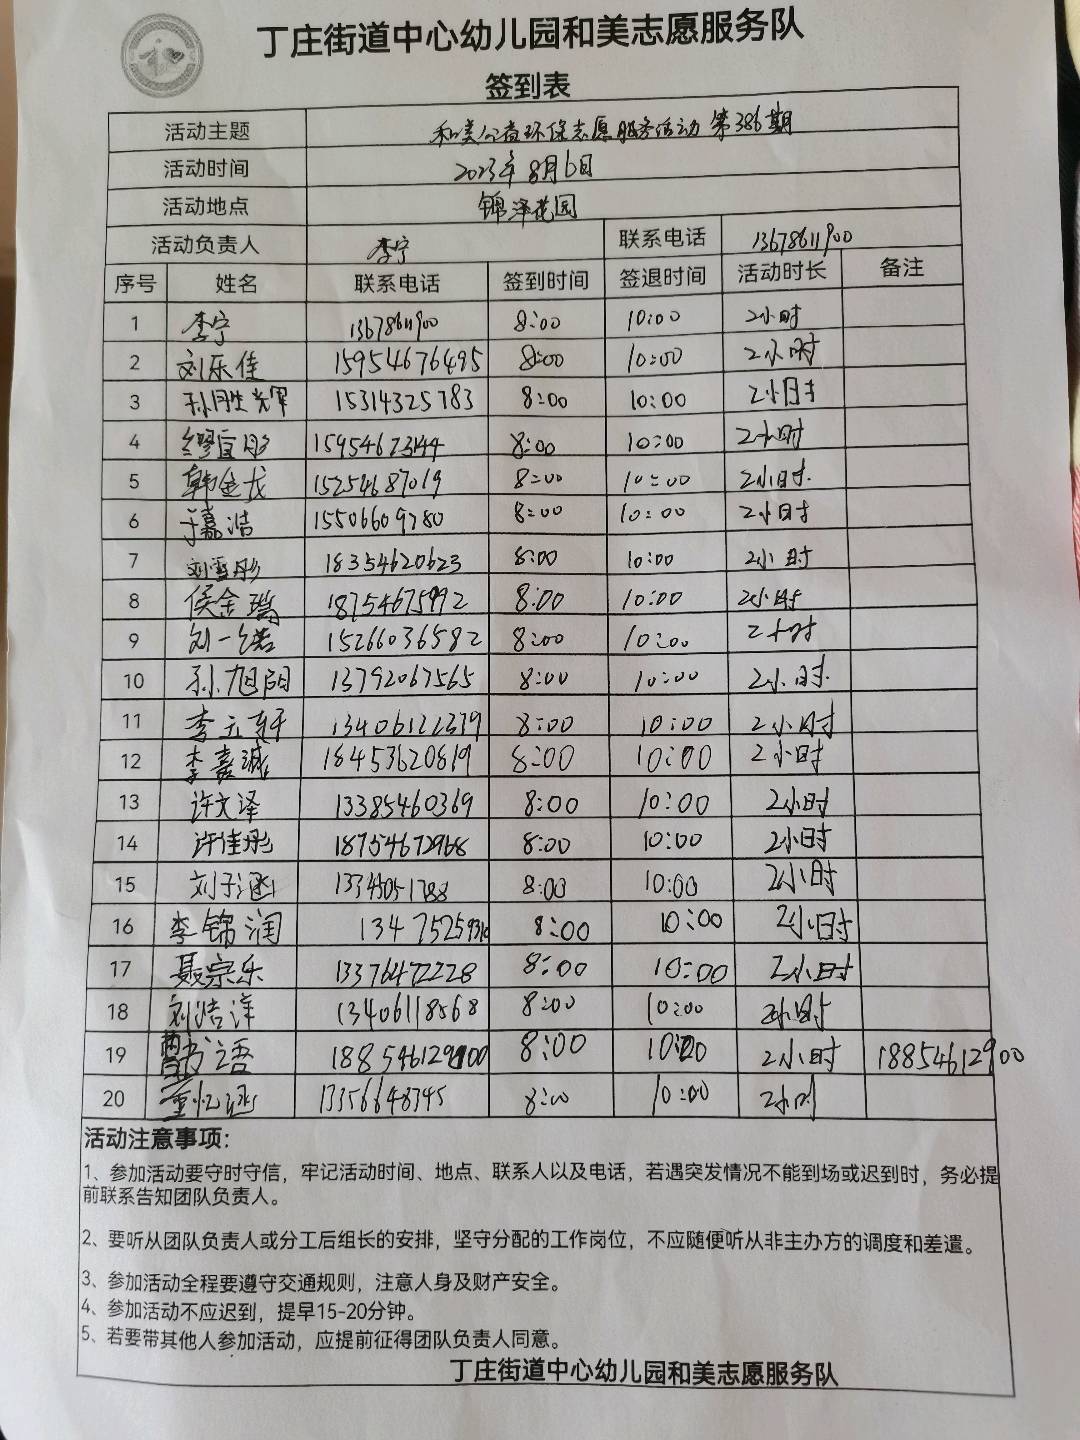 丁庄街道中心幼儿园和美志愿服务队
签到表
活动主题 和美公益环保志愿服务活动 第386期
活动时间 2023年8月6日
活动地点 锦泽花园
活动负责人 李宁 联系电话 13678611900
序号 姓名 联系电话 签到时间 签退时间 活动时长 备注
1 李宁 13678611900 8:00 10:00 2小时
2 刘乐佳 15954676495 8:00 10:00 2小时
3 孙胜光军 15314325783 8:00 10:00 2小时
4 缪宜彤 8:00 10:00 2小时
5 韩金龙 15254687019 8:00 10:00 2小时
6 于嘉浩 15506609780 8:00 10:00 2小时
7 刘雪彤 18354620623 8:00 10:00 2小时
8 侯金瑞 18754675992 8:00 10:00 2小时
9 刘一诺 15266036582 8:00 10:00 2小时
10 孙旭阳 13792067565 8:00 10:00 2小时
11 李玉轩 8:00 10:00 2小时
12 李嘉诚 18453620819 8:00 10:00 2小时
13 许文泽 13385460369 8:00 10:00 2小时
14 许佳彤 18754672968 8:00 10:00 2小时
15 刘子涵 8:00 10:00 2小时
16 李锦润 8:00 10:00 2小时
17 聂宗乐 13376472228 8:00 10:00 2小时
18 刘浩洋 13406118568 8:00 10:00 2小时
19 书语 8:00 10:00 2小时 18854612900
20 董忆涵 13356648345 8:00 10:00 2小时
活动注意事项：
1、参加活动要守时守信，牢记活动时间、地点、联系人以及电话，若遇突发情况不能到场或迟到时，务必提
前联系告知团队负责人。
2、要听从团队负责人或分工后组长的安排，坚守分配的工作岗位，不应随便听从非主办方的调度和差遣。
3、参加活动全程要遵守交通规则，注意人身及财产安全。
4、参加活动不应迟到，提早15-20分钟。
5、若要带其他人参加活动，应提前征得团队负责人同意。
丁庄街道中心幼儿园和美志愿服务队